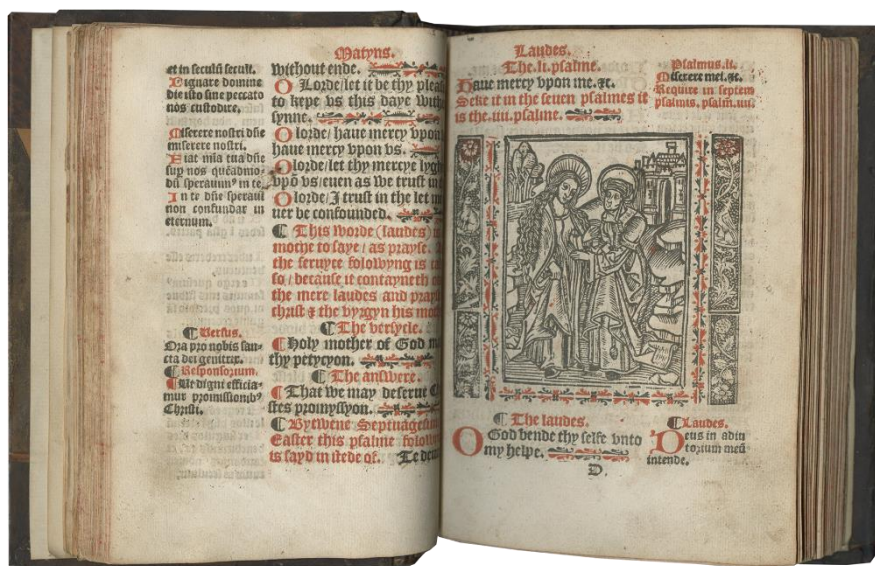 Matyns.
et in seculū seculi.
Dignare domine
die isto sine peccato
nos custodire.
Miserere nostri dñe
miserere nostri.
Fiat mīa tua dñe
sup nos quēadmo-
dū sperauim⁹ in te.
In te dñe speraui
non confundar in
eternum.
¶ Versus.
Ora pro nobis san-
cta dei genitrix.
¶ Responsorium.
Ut digni efficia-
mur promissionib⁹
Christi.
without ende.
O Lorde/let it be thy pleas
to kepe vs this daye with
synne.
O lorde/ haue mercy vpon
haue mercy vpon vs.
O lorde/let thy mercye lygh
vpō vs/euen as we trust in
O lorde/ I trust in the let
uer be confounded.
¶ This worde (laudes) is
moche to saye/ as prayse.
the seruyce folowyng is
so/ because it contayneth
the mere laudes and prays
christ & the vyrgyn his mo
¶ The versycle.
¶ Holy mother of God
thy petycyon.
¶ The answere.
¶ That we may deserue
stes promyssyon.
¶ Bytwene Septuagesim
Easter this psalme folow
is sayd in stede of. Te deu
Laudes.
The .li. psalme.
Haue mercy vpon me. &c.
Seke it in the seuen psalmes it
is the .iiii. psalme.
Psalmus .li.
Miserere mei. &c.
Require in septem
psalmis. psalm. iiii.
¶ The laudes.
O God bende thy selfe vnto
my helpe.
¶ Laudes.
Deus in adiu
torium meū
intende.
D.